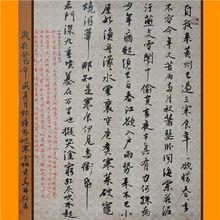 自我來黃州已過三寒食年年欲惜春春去
不容惜今年又苦雨兩月秋蕭瑟臥聞海棠花泥
污燕支雪闇中偷負去夜半真有力何殊病
少年病起頭已白春江欲入戶雨勢來不已小
屋如漁舟濛濛水雲裏空庖煮寒菜破竈
燒濕葦那知是寒食但見烏銜紙
君門深九重墳墓在萬里也擬哭塗窮死灰吹不起
歲在癸巳年